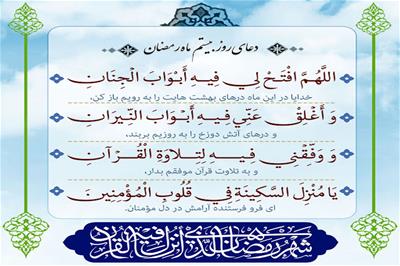 دعای روز بیستم ماه رمضان
اللَّهُمَّ افْتَحْ لِي فِيهِ أَبْوَابَ الْجِنَانِ
خدایا در این ماه درهای بهشت هایت را به رویم باز کن،
وَ أَغْلِقْ عَنِّي فِيهِ أَبْوَابَ النِّيرَانِ
و درهای آتش دوزخ را به رویم بربند،
وَ وَفِّقْنِي فِيهِ لِتِلَاوَةِ الْقُرْآنِ
و به تلاوت قرآن موفقم بدار،
يَا مُنْزِلَ السَّكِينَةِ فِي قُلُوبِ الْمُؤْمِنِينَ
ای فرو فرستنده آرامش در دل مؤمنان.
شهر رمضان الذی انزل فیه القرآن